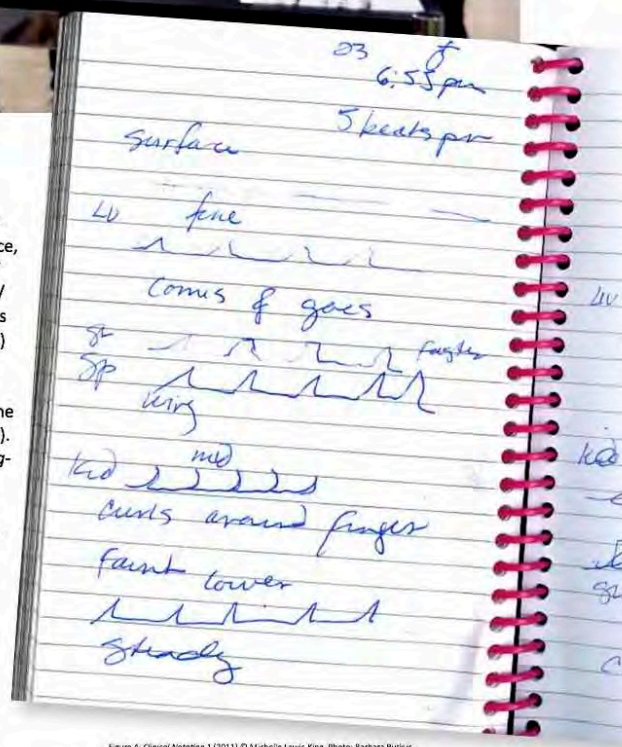 23
6:55 pm
5 beats pr
Surface
Lv fine
Comes & goes
St faster
Sp
wiry
Kid med
Curls around finger
faint lower
Steady
Liv
Kid
ce,
y
s
)
ne
).
g-
Figure 4: Clinical Notation 1 (2011) © Michelle Lewis King. Photo: Barbara Butkus